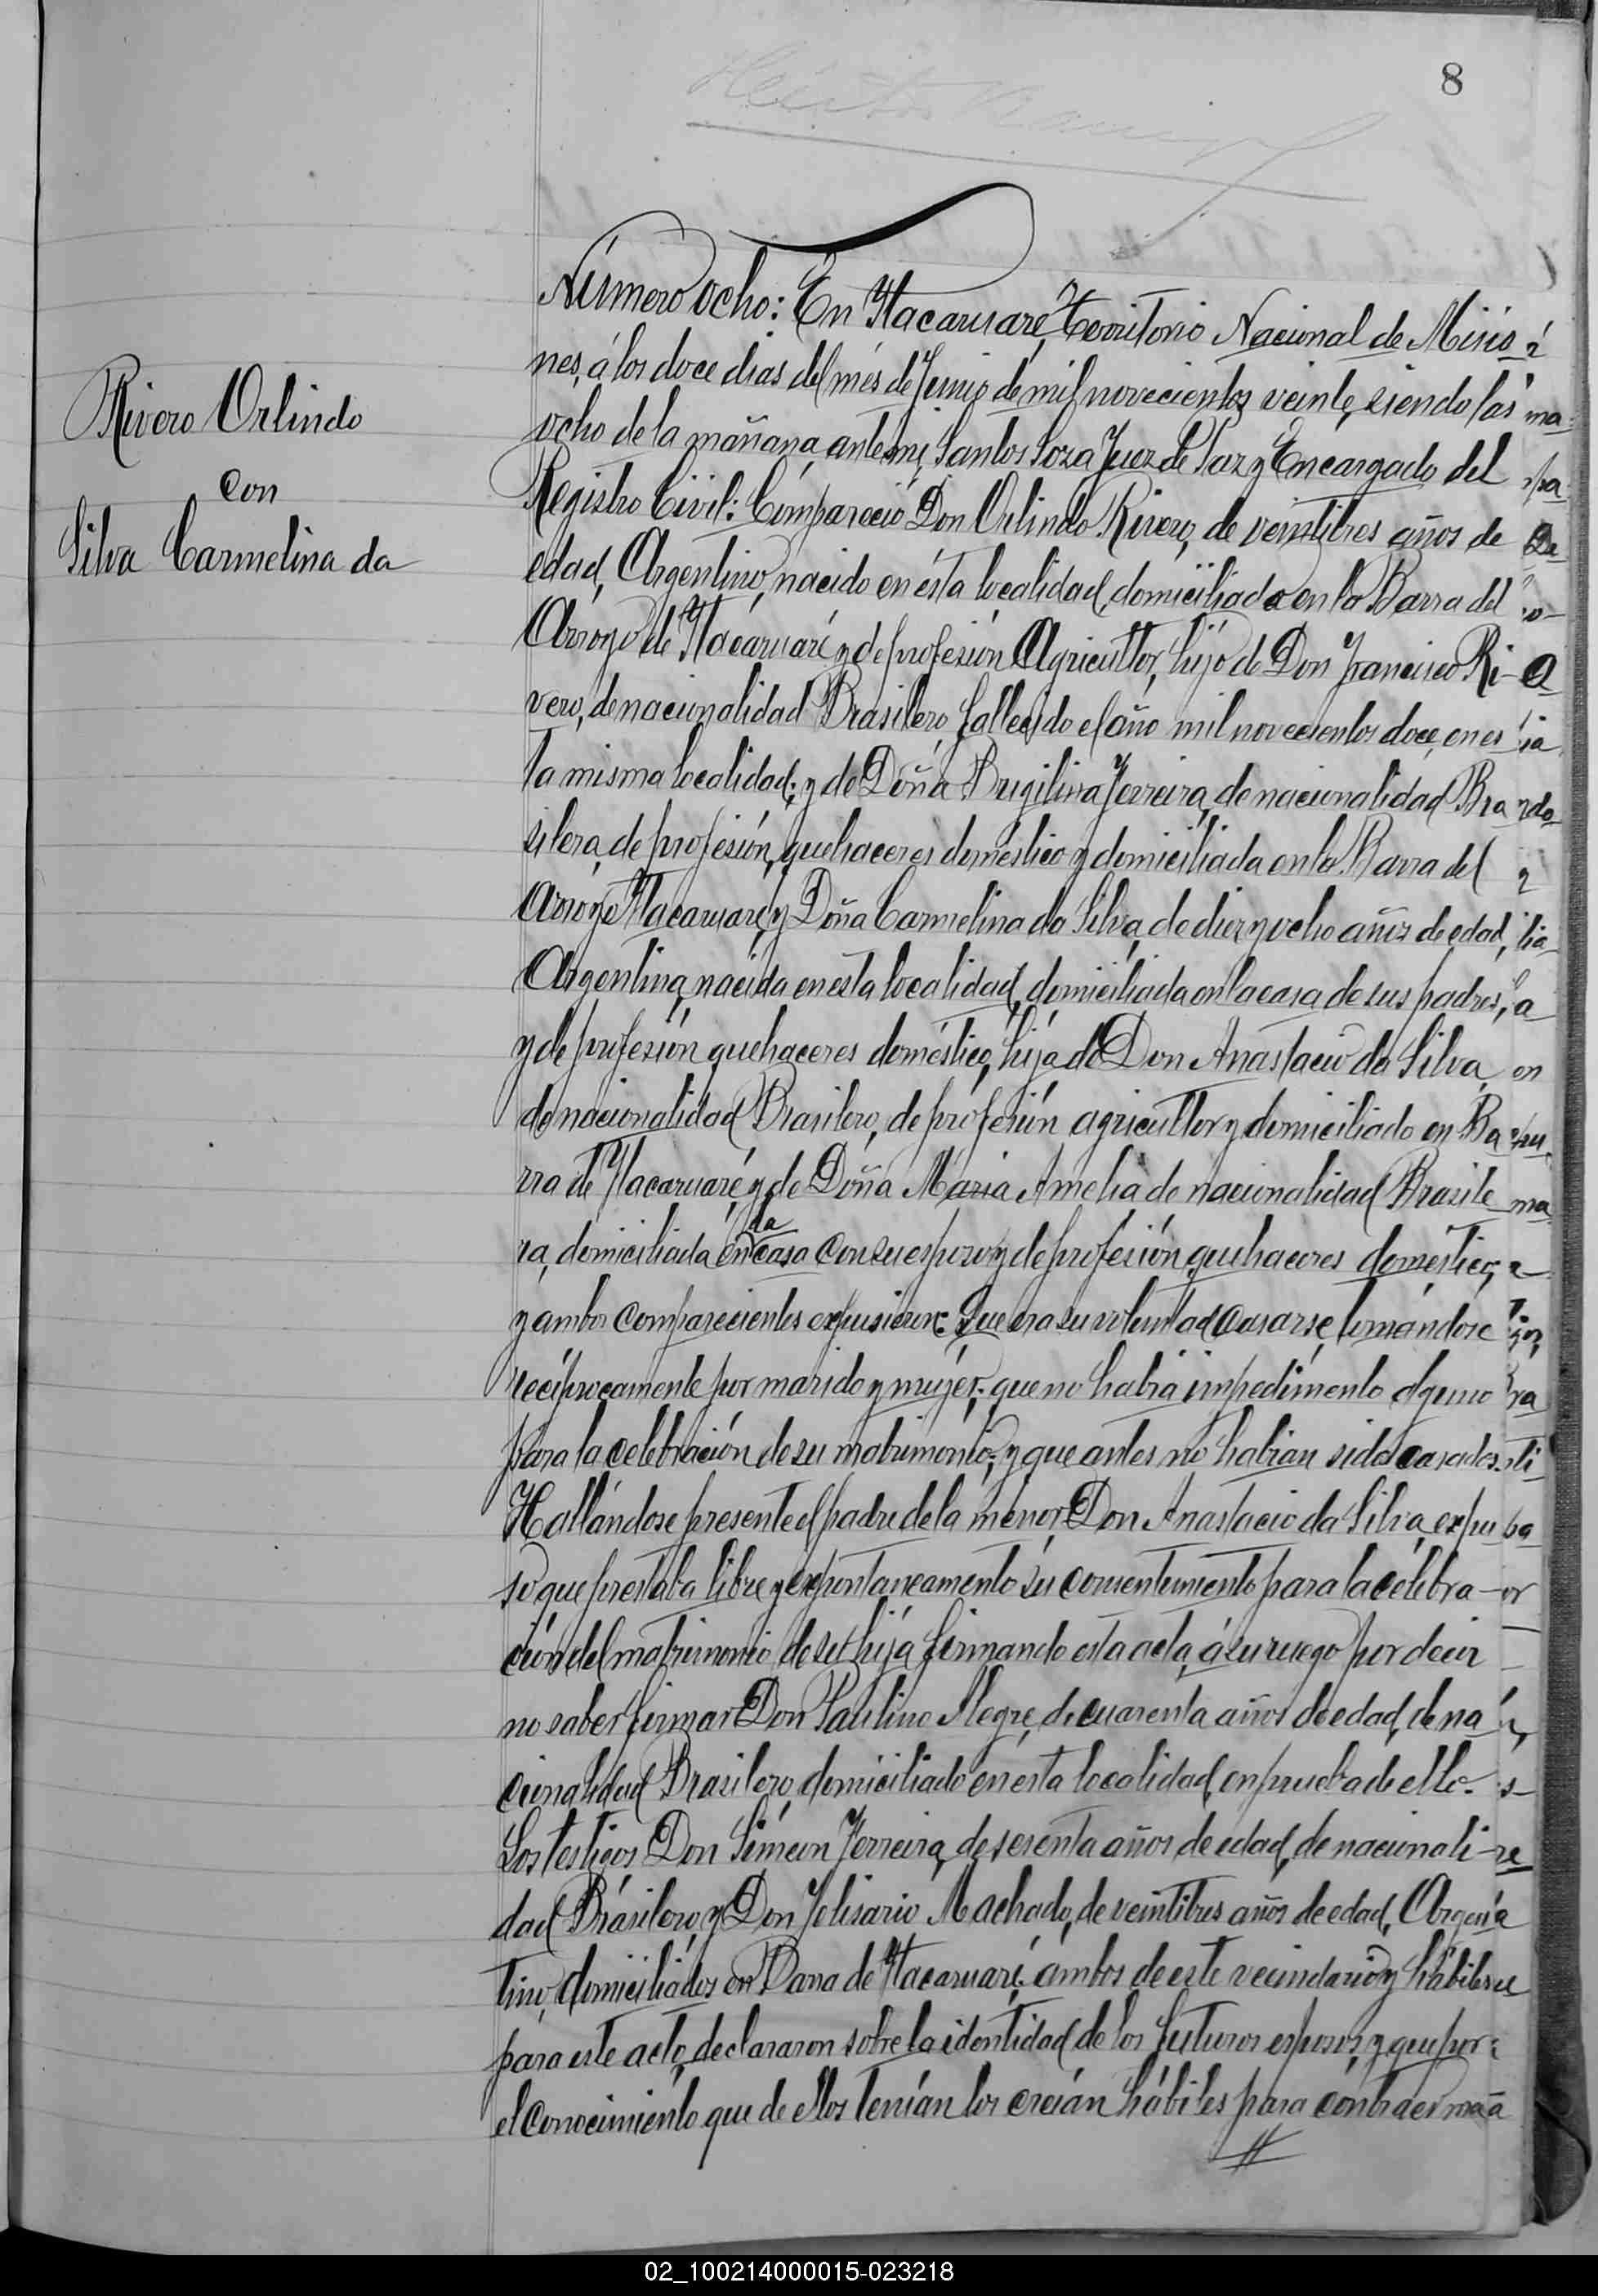 8
Rivero Orlindo
con
Silva Carmelina da
Número ocho: En Itacaruaré, Territorio Nacional de Misio
nes, á los doce dias del més de Junio de mil novecientos veinte, siendo las
ocho de la mañana, ante mi, Santos Soza Juez de Paz y Encargado del
Registro Civil: Compareció Don Orlindo Rivero, de veintitres años de
edad, Argentino, nacido en ésta localidad, domiciliado en la Barra del
Arroyo de Itacaruaré y de profesión Agricultor, hijo de Don Francisco Ri-
vero, de nacionalidad Brasilero, fallecido el año mil novecientos doce, en es
ta misma localidad; y de Doña Brigilina Ferreira, de nacionalidad Bra
silera, de profesión, quehaceres doméstico y domiciliada en la Barra del
Arroyo Itacaruaré, y Doña Carmelina da Silva, de diez y ocho años de edad,
Argentina, nacida en esta localidad, domiciliada en la casa de sus padres,
y de profesión quehaceres doméstico, hija de Don Anastacio da Silva,
de nacionalidad Brasilero, de profesión agricultor y domiciliado en Ba
rra de Itacaruaré, y de Doña Maria Amelia de nacionalidad Brasile
ra, domiciliada en la casa con su esposo y de profesión quehaceres doméstico,
y ambos comparecientes expusieron: Que era su voluntad casarse, tomándose
recíprocamente por marido y mujer; que no habia impedimento alguno
para la celebración de su matrimonio; y que antes no habian sido casados.
Hallándose presente el padre de la menor Don Anastacio da Silva, expu
so que prestaba libre y expontaneamente su consentimiento para la celebra-
ción del matrimonio de su hija firmando esta acta, á su ruego por decir
no saber firmar Don Paulino Alegre, de cuarenta años de edad, de na
cionalidad Brasilero, domiciliado en esta localidad, en prueba de ello.
Los testigos Don Simeon Ferreira, de sesenta años de edad, de nacionali-
dad Brasilero, y Don Felisario Machado, de veintitres años de edad, Argen
tino, domiciliados en Barra de Itacaruaré, ambos de este vecindario y hábiles
para este acto, declararon sobre la identidad de los futuros esposos, y que por
el conocimiento que de ellos tenían los creían hábiles para contraer ma
02_100214000015-023218